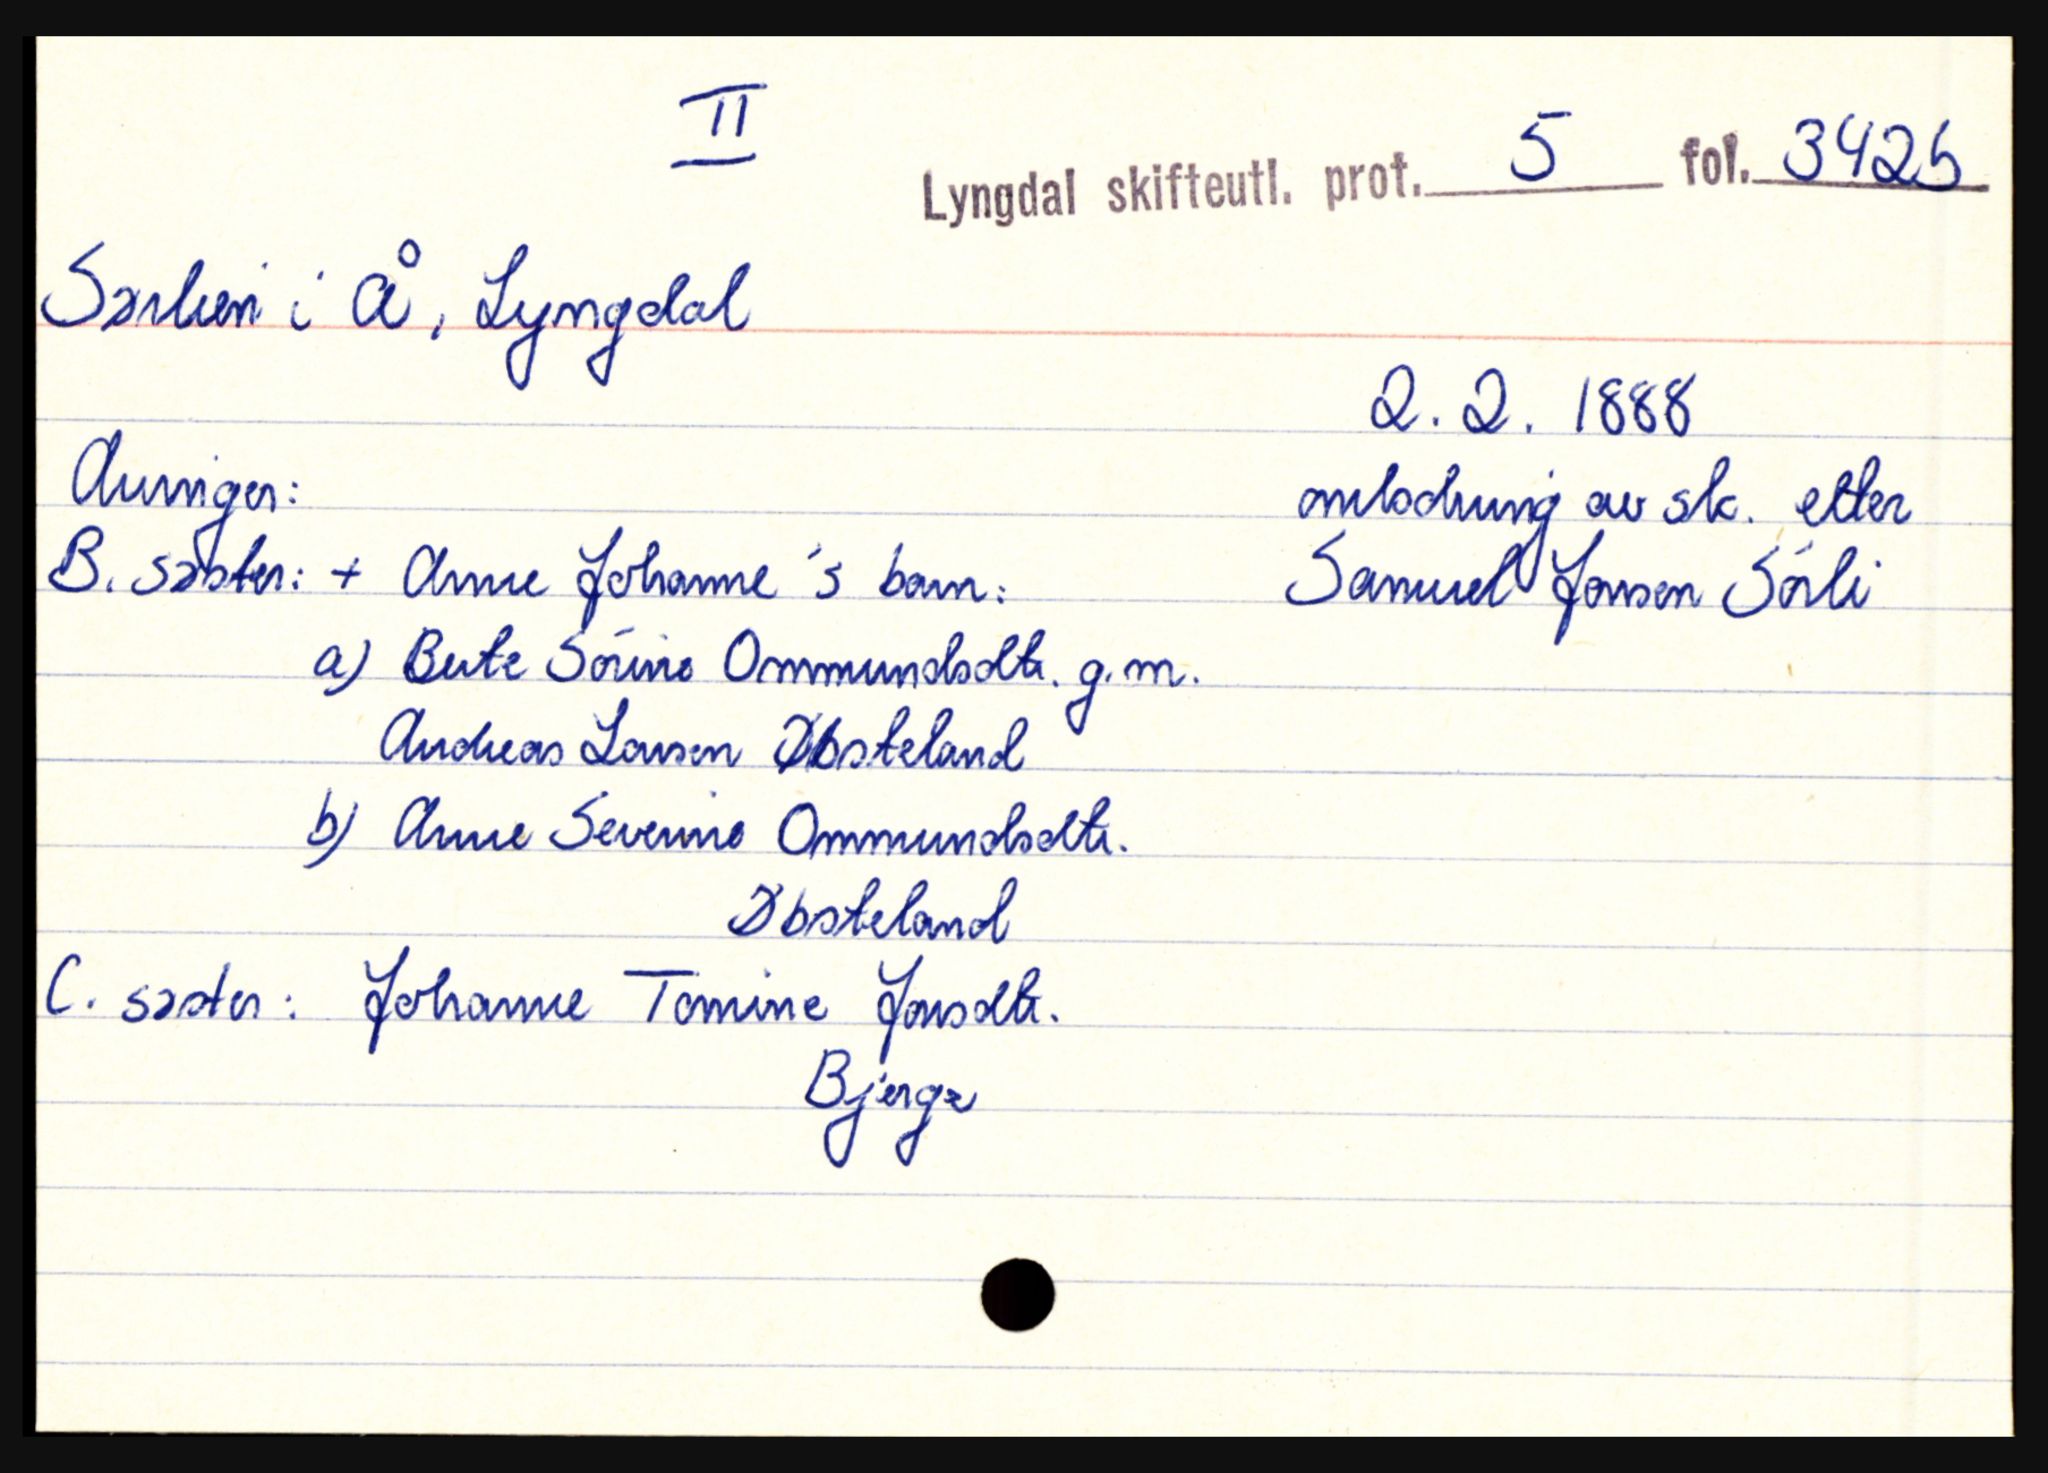 II
Lyngdal skifteutl. prot. 5 fol. 342b
Sørlien i Å, Lyngdal
2.2.1888
Arvinger:
omlodning av sk. etter
B. søster: + Anne Johanne's barn:
Samuel Jonsen Sörli
a) Berte Sörine Ommundsdtr. g.m.
Andreas Larsen Øbsteland
b) Anne Severine Ommundsdtr.
Øbsteland
C. søster: Johanne Tomine Jonsdtr.
Bjerge